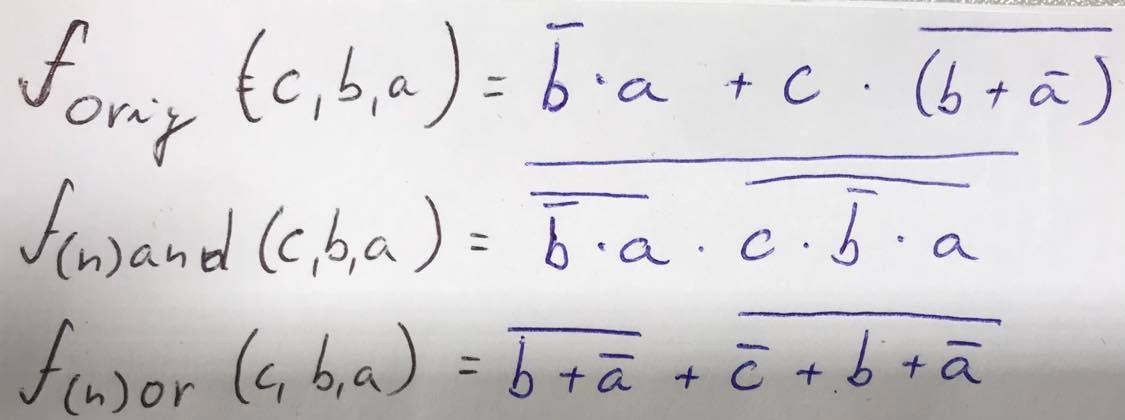 f_orig (c, b, a) = \overline{b} · a + c · \overline{(b + \overline{a})}
f_(n)and (c, b, a) = \overline{\overline{\overline{b} · a} · \overline{c · \overline{b} · a}}
f_(n)or (c, b, a) = \overline{b + \overline{a}} + \overline{\overline{c} + b + \overline{a}}